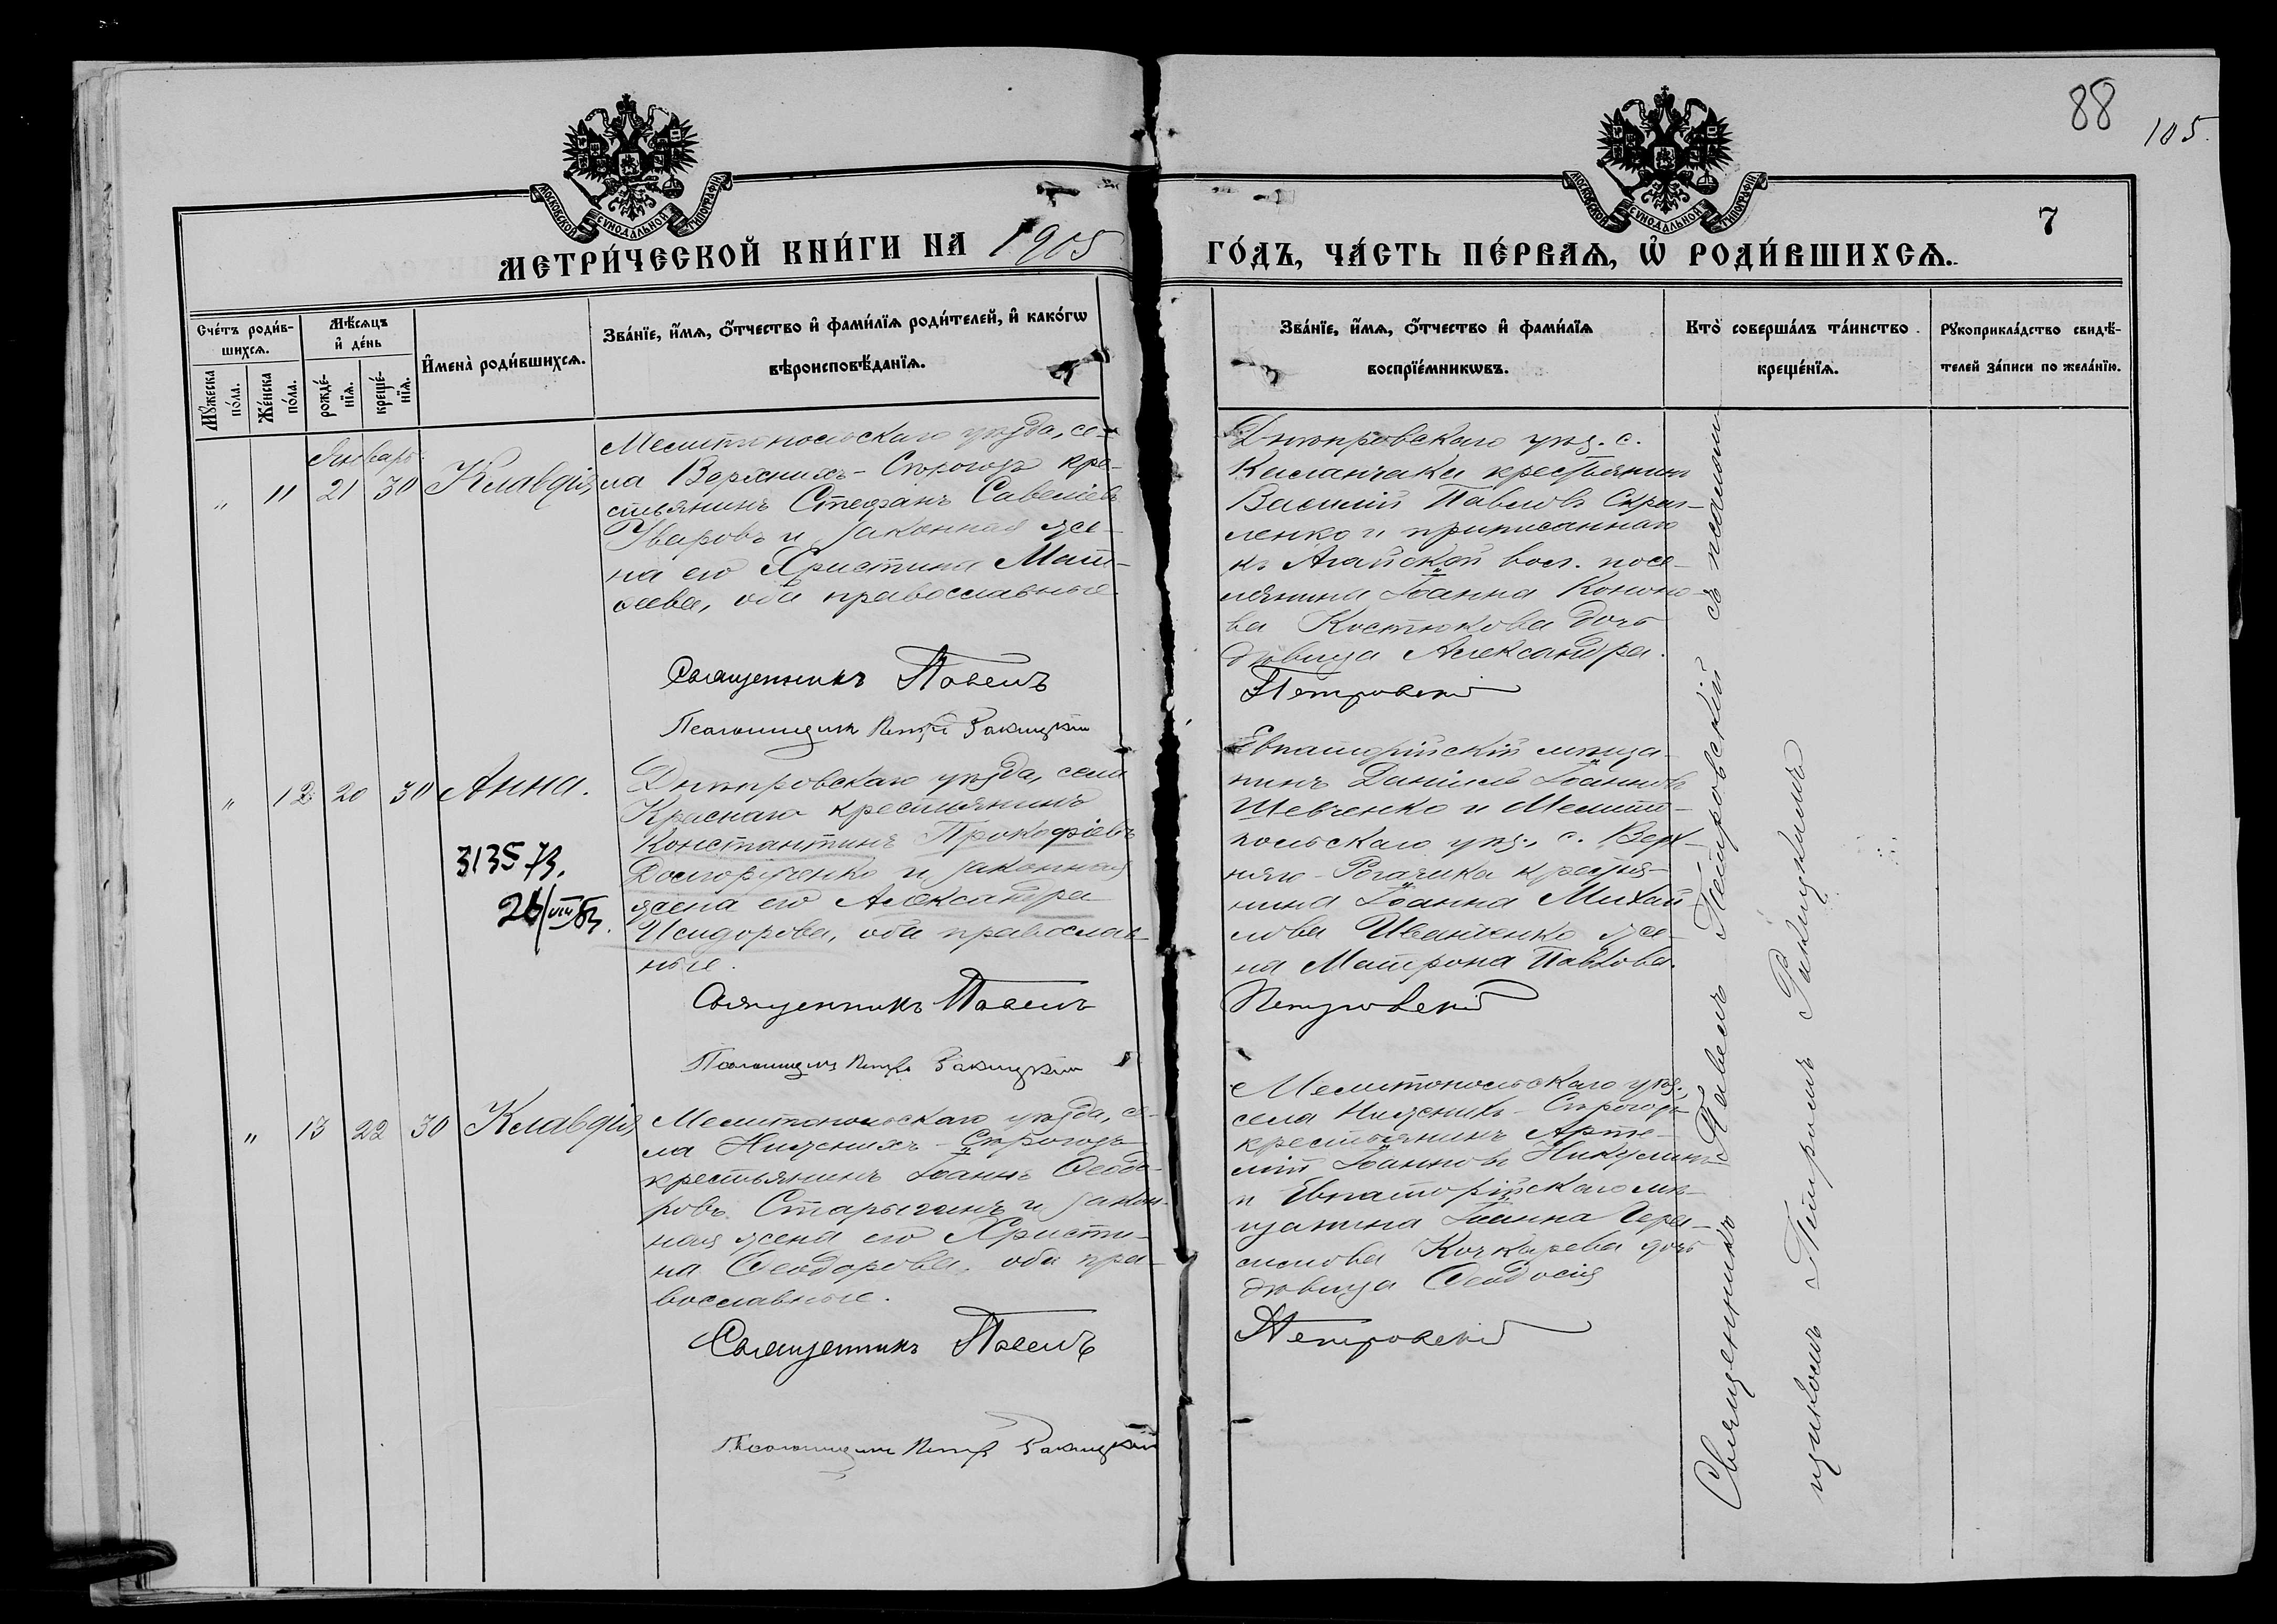 88
105.
МОСКОВСКОЙ СѴНОДАЛЬНОЙ ТИПОГРАФІИ
МОСКОВСКОЙ СѴНОДАЛЬНОЙ ТИПОГРАФІИ
7
МЕТРИ́ЧЕСКОЙ КНИ́ГИ НА 1905
ГО́ДЪ, ЧА́СТЬ ПЕ́РВАѦ, Ѡ҆ РОДИ́ВШИХСѦ.
Сче́тъ роди́в-
шихсѧ.
Мꙋ́жеска по́ла.
Же́нска по́ла.
Мѣ́сѧцъ
и҆ де́нь
рожде́-
нїѧ.
креще́-
нїѧ.
И҆мена̀ роди́вшихсѧ.
Зва́нїе, и҆́мѧ, ѻ҆́тчество и҆ фами́лїѧ роди́телей, и҆ како́гѡ
вѣроисповѣ́данїѧ.
Зва́нїе, и҆́мѧ, ѻ҆́тчество и҆ фами́лїѧ
воспрїе́мникѡвъ.
Кто̀ соверша́лъ та́инство
креще́нїѧ.
Рꙋкоприкла́дство свидѣ́-
телей за́писи по жела́нїю.
Январь
" 11 21 30 Клавдія
Мелитопольскаго уѣзда, се-
ла Верхнихъ-Сѣрогозъ кре-
стьянинъ Стефанъ Савеліевъ
Уваровъ и законная же-
на его Христина Мат-
ѳеева, оба православные.
Священникъ Павелъ
Псаломщикъ Петръ Ракицкій
Днѣпровскаго уѣз. с.
Каланчака крестьянинъ
Василій Павловъ
и приписаннаго
къ Агайской вол. посе-
лянина Іоанна Кононо-
ва Костюкова дочь
дѣвица Александра.
Петровскій
" 12 20 30 Анна.
31357З.
26/VIII
Днѣпровскаго уѣзда, села
Краснаго крестьянинъ
Константинъ Прокофіевъ
Долгорученко и законная
жена его Александра
Исидорова, оба православ-
ные.
Священникъ Павелъ
Псаломщикъ Петръ Ракицкій
Евпаторійскій мѣща-
нинъ Даніилъ Іоанновъ
Шевченко и Мелито-
польскаго уѣз., с. Верх-
няго-Рогачика крестья-
нина Іоанна Михай-
лова Иваненко же-
на Матрона Павлова.
Петровскій
" 13 22 30 Клавдія
Мелитопольскаго уѣзда, се-
ла Нижнихъ-Сѣрогозъ
крестьянинъ Іоаннъ Ѳеодо-
ровъ Старыгинъ и закон-
ная жена его Христи-
на Ѳеодорова, оба пра-
вославные.
Священникъ Павелъ
Псаломщикъ Петръ Ракицкій
Мелитопольскаго уѣз.,
села Нижнихъ-Сѣрогозъ
крестьянинъ Арте-
мій Іоанновъ Никулинъ
и Евпаторійскаго мѣ-
щанина Іоанна Гера-
симова Кочкарева дочь
дѣвица Ѳеодосія
Петровскій
Священникъ Павелъ Петровскій съ псаломщи-
щикомъ Петромъ Ракицкимъ